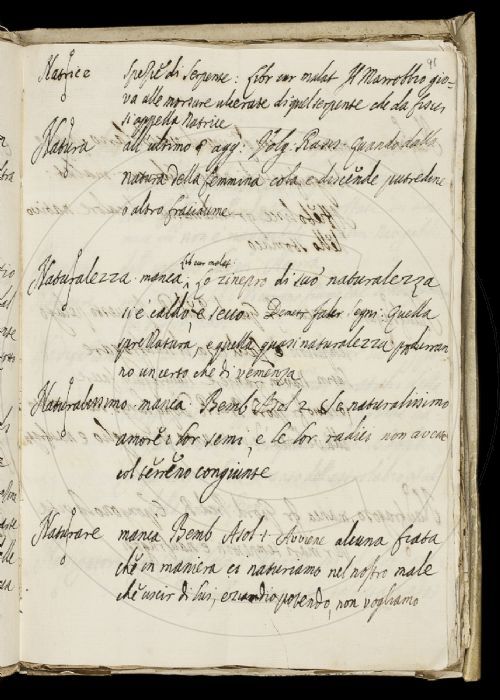 91
Natrice spezie di serpente: Libr cur malat Il Marrobbio gio-
va alle morsure ulcerate di quel serpente che da fisici
si appella Natrice
Natura all'ultimo § agg: Volg. Rasis. Quando dalla
natura della femmina cola e discende putredine
o altro fracidume
Naturalezza. manca. Libr cur malat: Lo zinepro di suo naturalezza
si è caldo e secco. Demetr Faler Segni. Quella
Natura, e quella quasi naturalezza
no un certo che di veemenza
Naturalissimo manca. Bemb Asol 2 Se naturalissimo
amore i lor semi, e le lor radici non avesse
col terreno congiunte
Naturare manca Bemb Asol 1 Avviene alcuna fiata
che in maniera ci naturiamo nel nostro male
che uscir di lui, eziandio potendo, non vogliamo